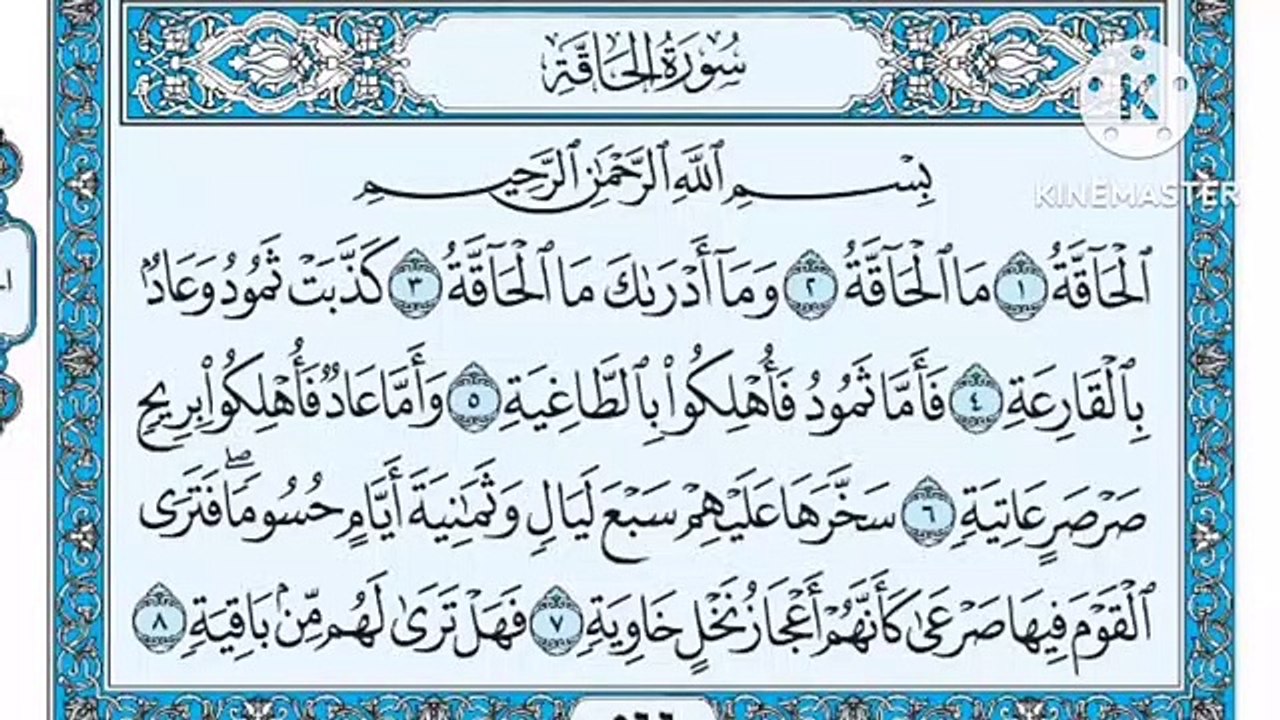 سُورَةُ الحَاقَّةِ
K
KINEMASTER
بِسْمِ ٱللَّهِ ٱلرَّحْمَٰنِ ٱلرَّحِيمِ
ٱلْحَآقَّةُ ١ مَا ٱلْحَآقَّةُ ٢ وَمَآ أَدْرَىٰكَ مَا ٱلْحَآقَّةُ ٣ كَذَّبَتْ ثَمُودُ وَعَادٌۢ
بِٱلْقَارِعَةِ ٤ فَأَمَّا ثَمُودُ فَأُهْلِكُوا۟ بِٱلطَّاغِيَةِ ٥ وَأَمَّا عَادٌ فَأُهْلِكُوا۟ بِرِيحٍ
صَرْصَرٍ عَاتِيَةٍ ٦ سَخَّرَهَا عَلَيْهِمْ سَبْعَ لَيَالٍ وَثَمَٰنِيَةَ أَيَّامٍ حُسُومًاۖ فَتَرَى
ٱلْقَوْمَ فِيهَا صَرْعَىٰ كَأَنَّهُمْ أَعْجَازُ نَخْلٍ خَاوِيَةٍ ٧ فَهَلْ تَرَىٰ لَهُم مِّنۢ بَاقِيَةٍ ٨